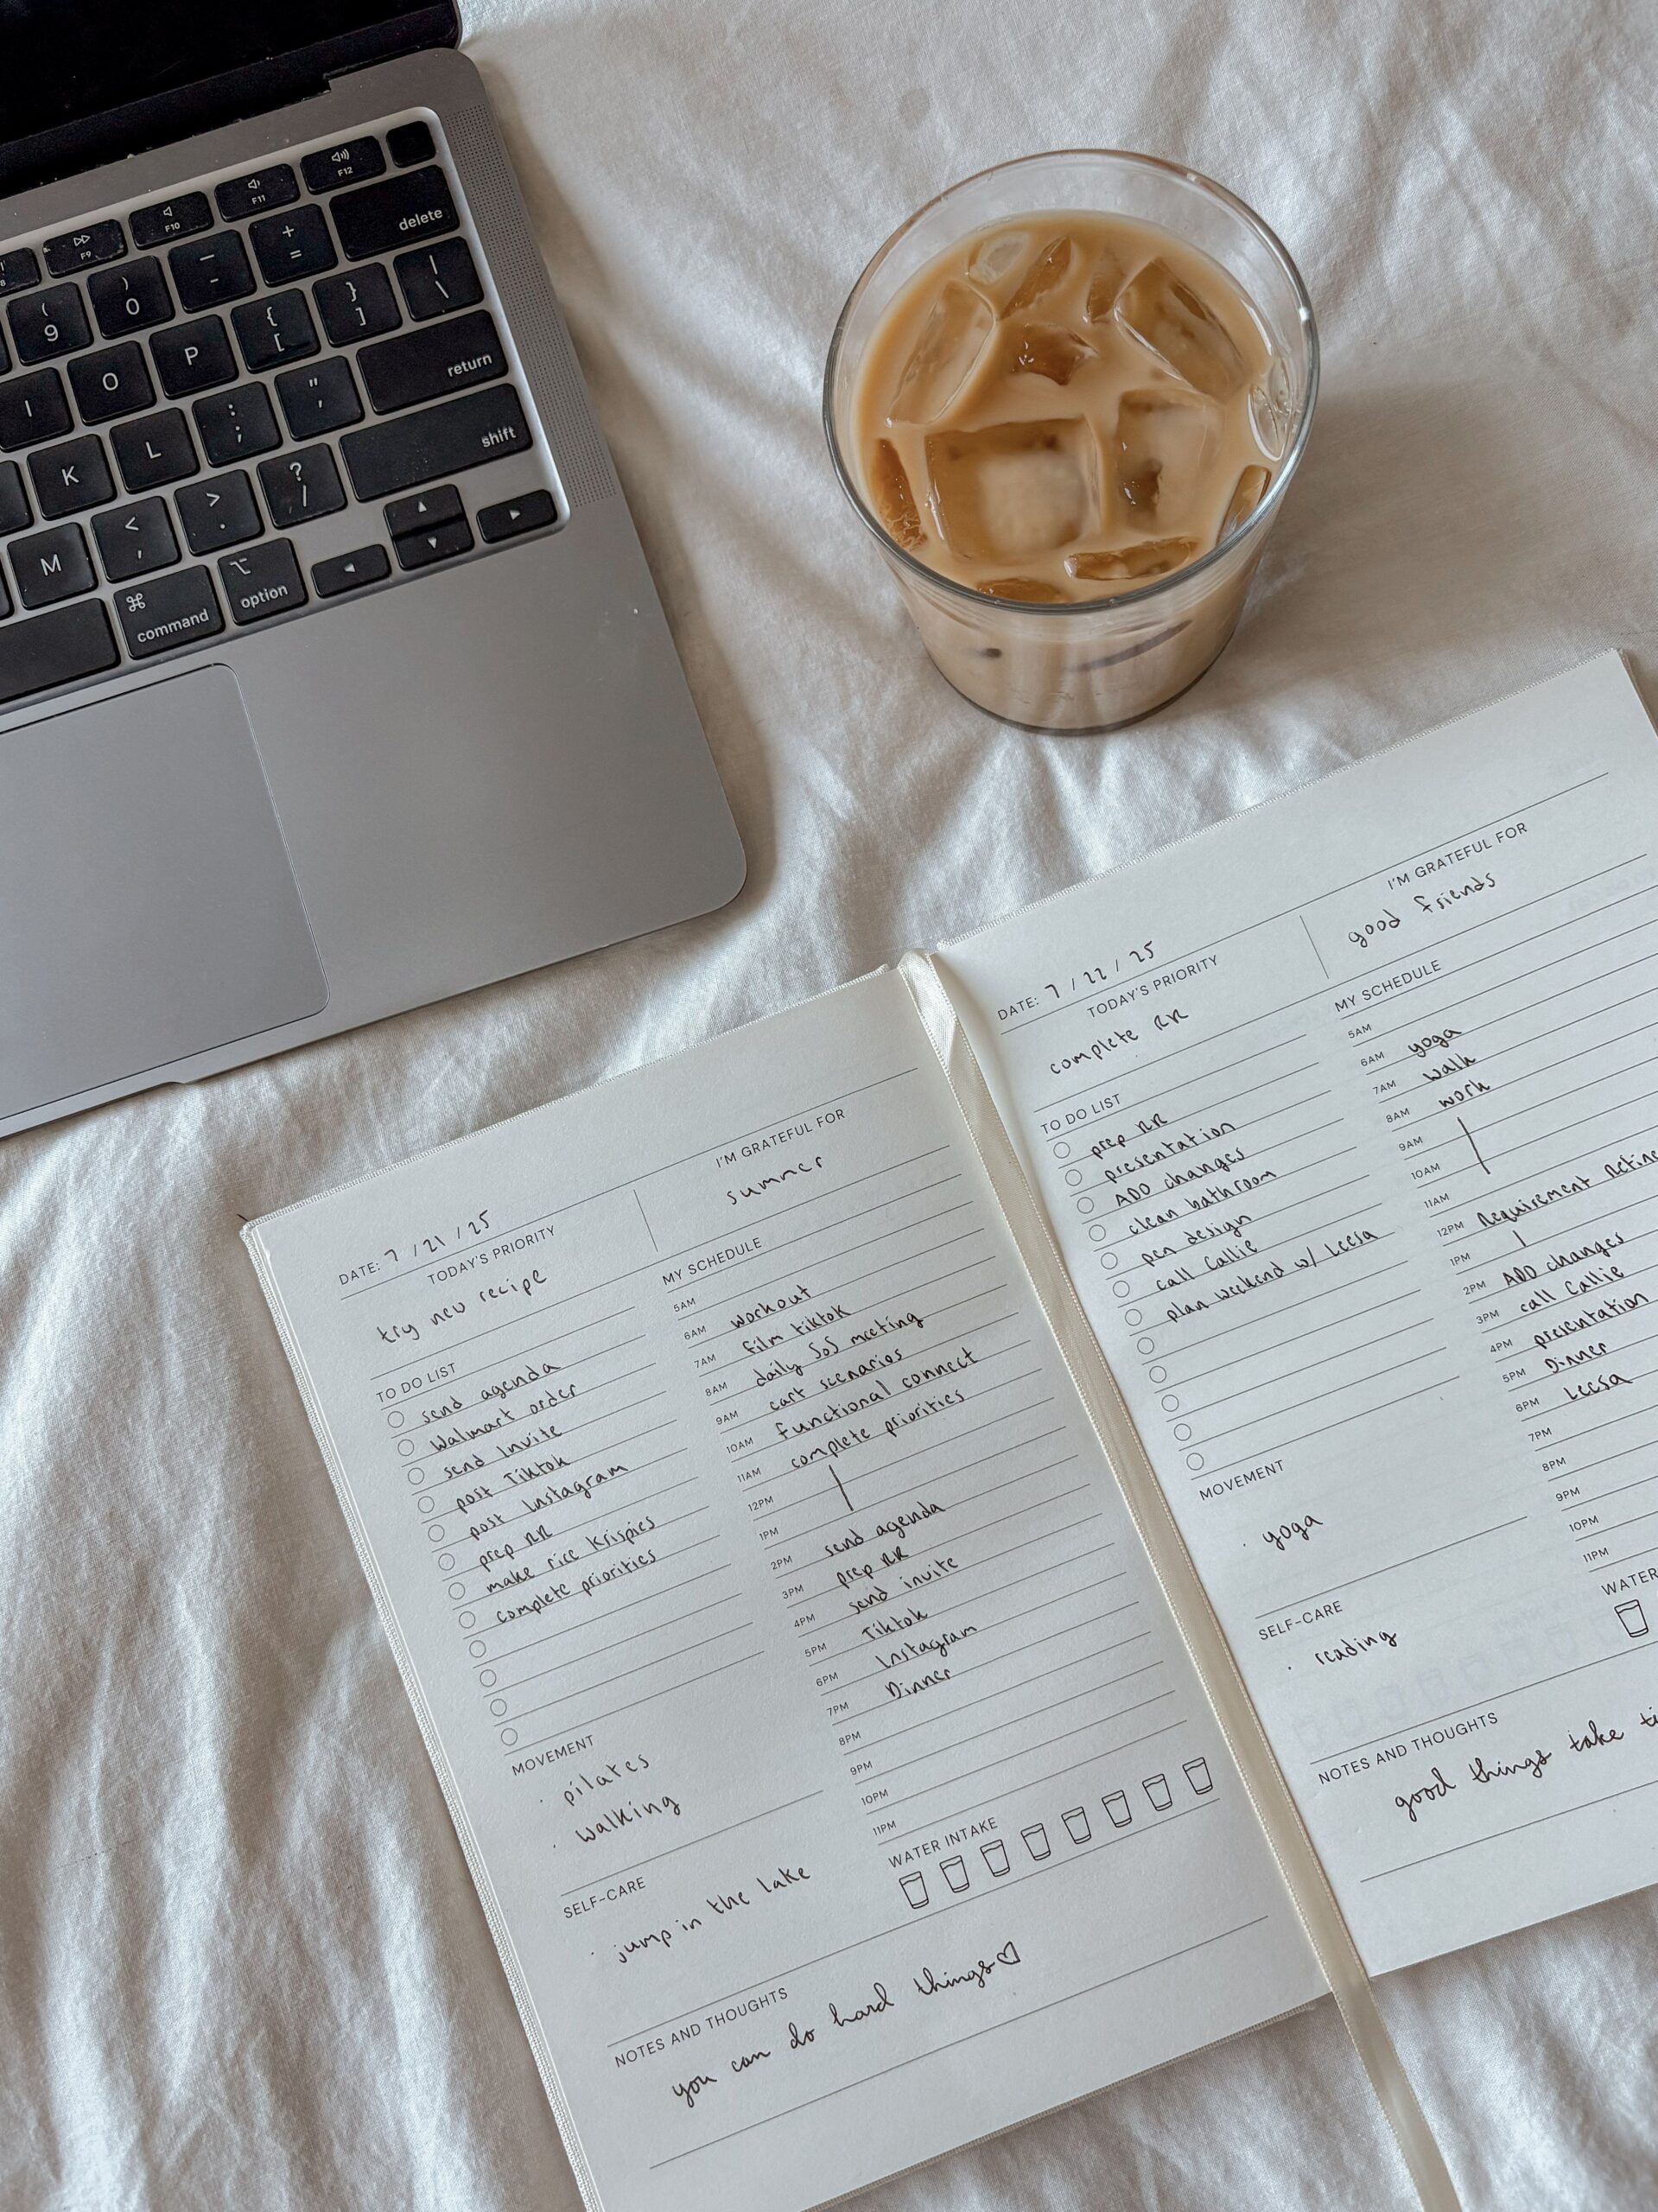 F12
F11
F10
F9
delete
+
=
_
-
)
0
(
9
|
\
}
]
{
[
P
O
I
return
"
'
:
;
L
K
shift
?
/
>
.
<
,
M
option
command
DATE: 7 / 21 / 25
TODAY'S PRIORITY
try new recipe
I'M GRATEFUL FOR
summer
TO DO LIST
send agenda
Walmart order
send Invite
post Tiktok
post Instagram
prep RR
make rice krispies
complete priorities
MY SCHEDULE
5AM
6AM workout
7AM film tiktok
8AM daily SoS meeting
9AM cart scenarios
10AM functional connect
11AM complete priorities
12PM
1PM
2PM send agenda
3PM prep RR
4PM send invite
5PM Tiktok
6PM Instagram
7PM Dinner
8PM
9PM
10PM
11PM
MOVEMENT
· pilates
· walking
WATER INTAKE
SELF-CARE
· jump in the lake
NOTES AND THOUGHTS
you can do hard things♡
DATE: 7 / 22 / 25
TODAY'S PRIORITY
complete RR
I'M GRATEFUL FOR
good friends
TO DO LIST
prep RR
presentation
ADO changes
clean bathroom
pen design
call Callie
plan weekend w/ Leesa
MY SCHEDULE
5AM
6AM yoga
7AM walk
8AM work
9AM
10AM
11AM
12PM Requirement Refine
1PM
2PM ADO changes
3PM call Callie
4PM presentation
5PM Dinner
6PM Leesa
7PM
8PM
9PM
10PM
11PM
MOVEMENT
· yoga
WATER
SELF-CARE
· reading
NOTES AND THOUGHTS
good things take ti